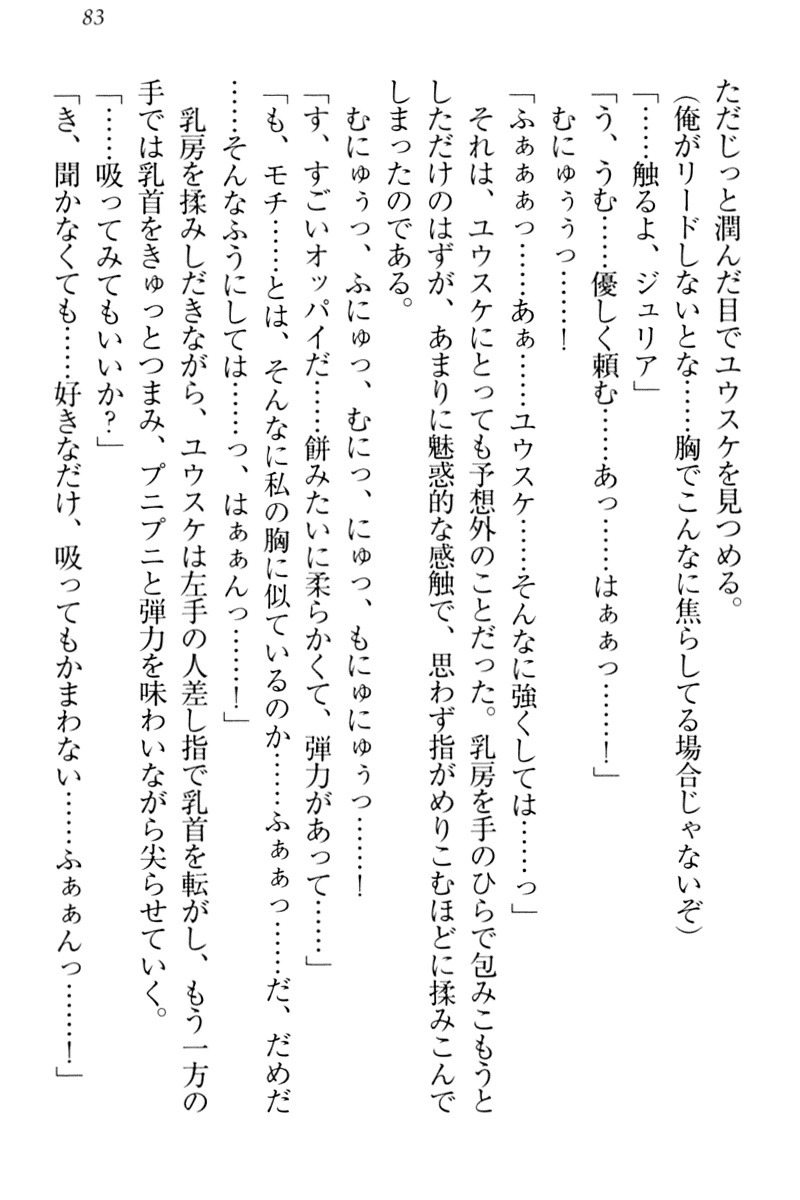 83
ただじっと潤んだ目でユウスケを見つめる。
(俺がリードしないとな……胸でこんなに焦らしてる場合じゃないぞ)
「……触るよ、ジュリア」
「う、うむ……優しく頼む……あっ……はぁぁっ……！」
むにゅぅぅっ……！
「ふぁぁぁっ……あぁ……ユウスケ……そんなに強くしては……っ」
それは、ユウスケにとっても予想外のことだった。乳房を手のひらで包みこもうと
しただけのはずが、あまりに魅惑的な感触で、思わず指がめりこむほどに揉みこんで
しまったのである。
むにゅぅっ、ふにゅっ、むにっ、にゅっ、もにゅにゅぅっ……！
「す、すごいオッパイだ……餅みたいに柔らかくて、弾力があって……」
「も、モチ……とは、そんなに私の胸に似ているのか……ふぁぁっ……だ、だめだ
……そんなふうにしては……っ、はぁぁんっ……！」
乳房を揉みしだきながら、ユウスケは左手の人差し指で乳首を転がし、もう一方の
手では乳首をきゅっとつまみ、プニプニと弾力を味わいながら尖らせていく。
「……吸ってみてもいいか？」
「き、聞かなくても……好きなだけ、吸ってもかまわない……ふぁぁんっ……！」